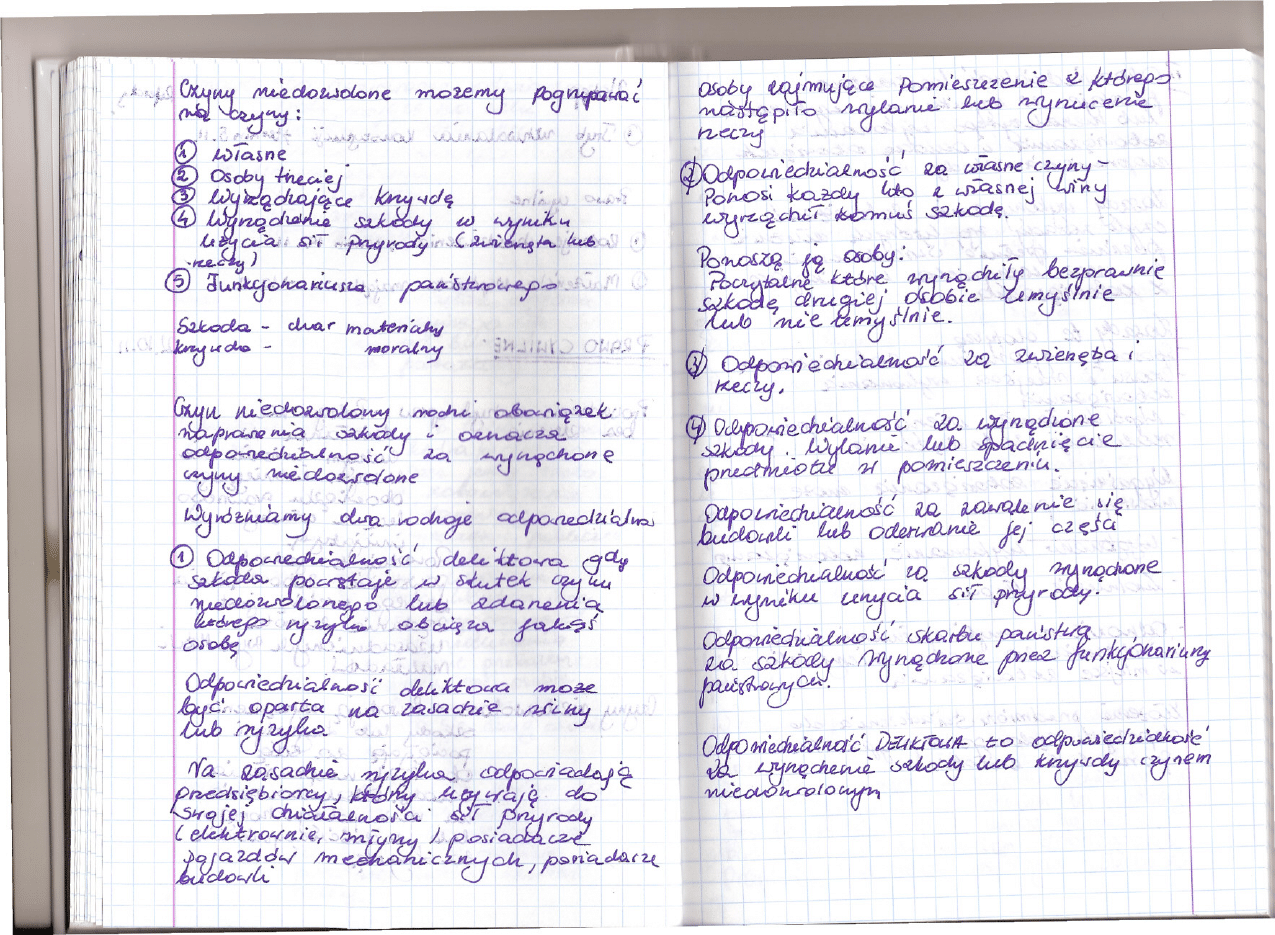 Czyny niedozwolone możemy pogrupować
na czyny:
① własne
② Osoby trzeciej
③ Wyrządzające krzywdę
④ Wyrządzenie szkody w wyniku
użycia sił przyrody (zwierzęta lub
rzeczy)
⑤ Funkcjonariusza państwowego
Szkoda - char materialny
krzywda - moralny
Czyn niedozwolony rodzi obowiązek
naprawienia szkody i oznacza
odpowiedzialność za wyrządzone
czyny niedozwolone
Wyróżniamy dwa rodzaje
① Odpowiedzialność deliktowa gdy
szkoda powstaje w skutek czynu
niedozwolonego lub zdarzenia
którego ryzyko obciąża jakąś
osobę
Odpowiedzialność deliktowa może
być oparta na zasadzie winy
lub ryzyka
Na zasadzie ryzyka odpowiadają
przedsiębiorcy, którzy używają do
swojej działalności sił przyrody
(elektrownie, młyny) posiadacze
pojazdów mechanicznych, posiadacze
budowli
osoby zajmujące pomieszczenie z którego
nastąpiło wylanie lub wyrzucenie
rzeczy
② Odpowiedzialność za własne czyny -
Ponosi każdy kto z własnej winy
wyrządził komuś szkodę.
Ponoszą ją osoby:
Poczytalne które wyrządziły bezprawnie
szkodę drugiej osobie umyślnie
lub nie umyślnie.
③ Odpowiedzialność za zwierzęta i
rzeczy.
④ Odpowiedzialność za wyrządzone
szkody. Wylanie lub spadnięcie
przedmiotu z pomieszczeniu.
Odpowiedzialność za zawalenie się
budowli lub oderwanie jej części
Odpowiedzialność za szkody wyrządzone
w wyniku użycia sił przyrody.
Odpowiedzialność skarbu państwa
za szkody wyrządzone przez funkcjonariuszy
państwowych.
Odpowiedzialność DELIKTOWA to odpowiedzialność
za wyrządzenie szkody lub krzywdy czynem
niedozwolonym